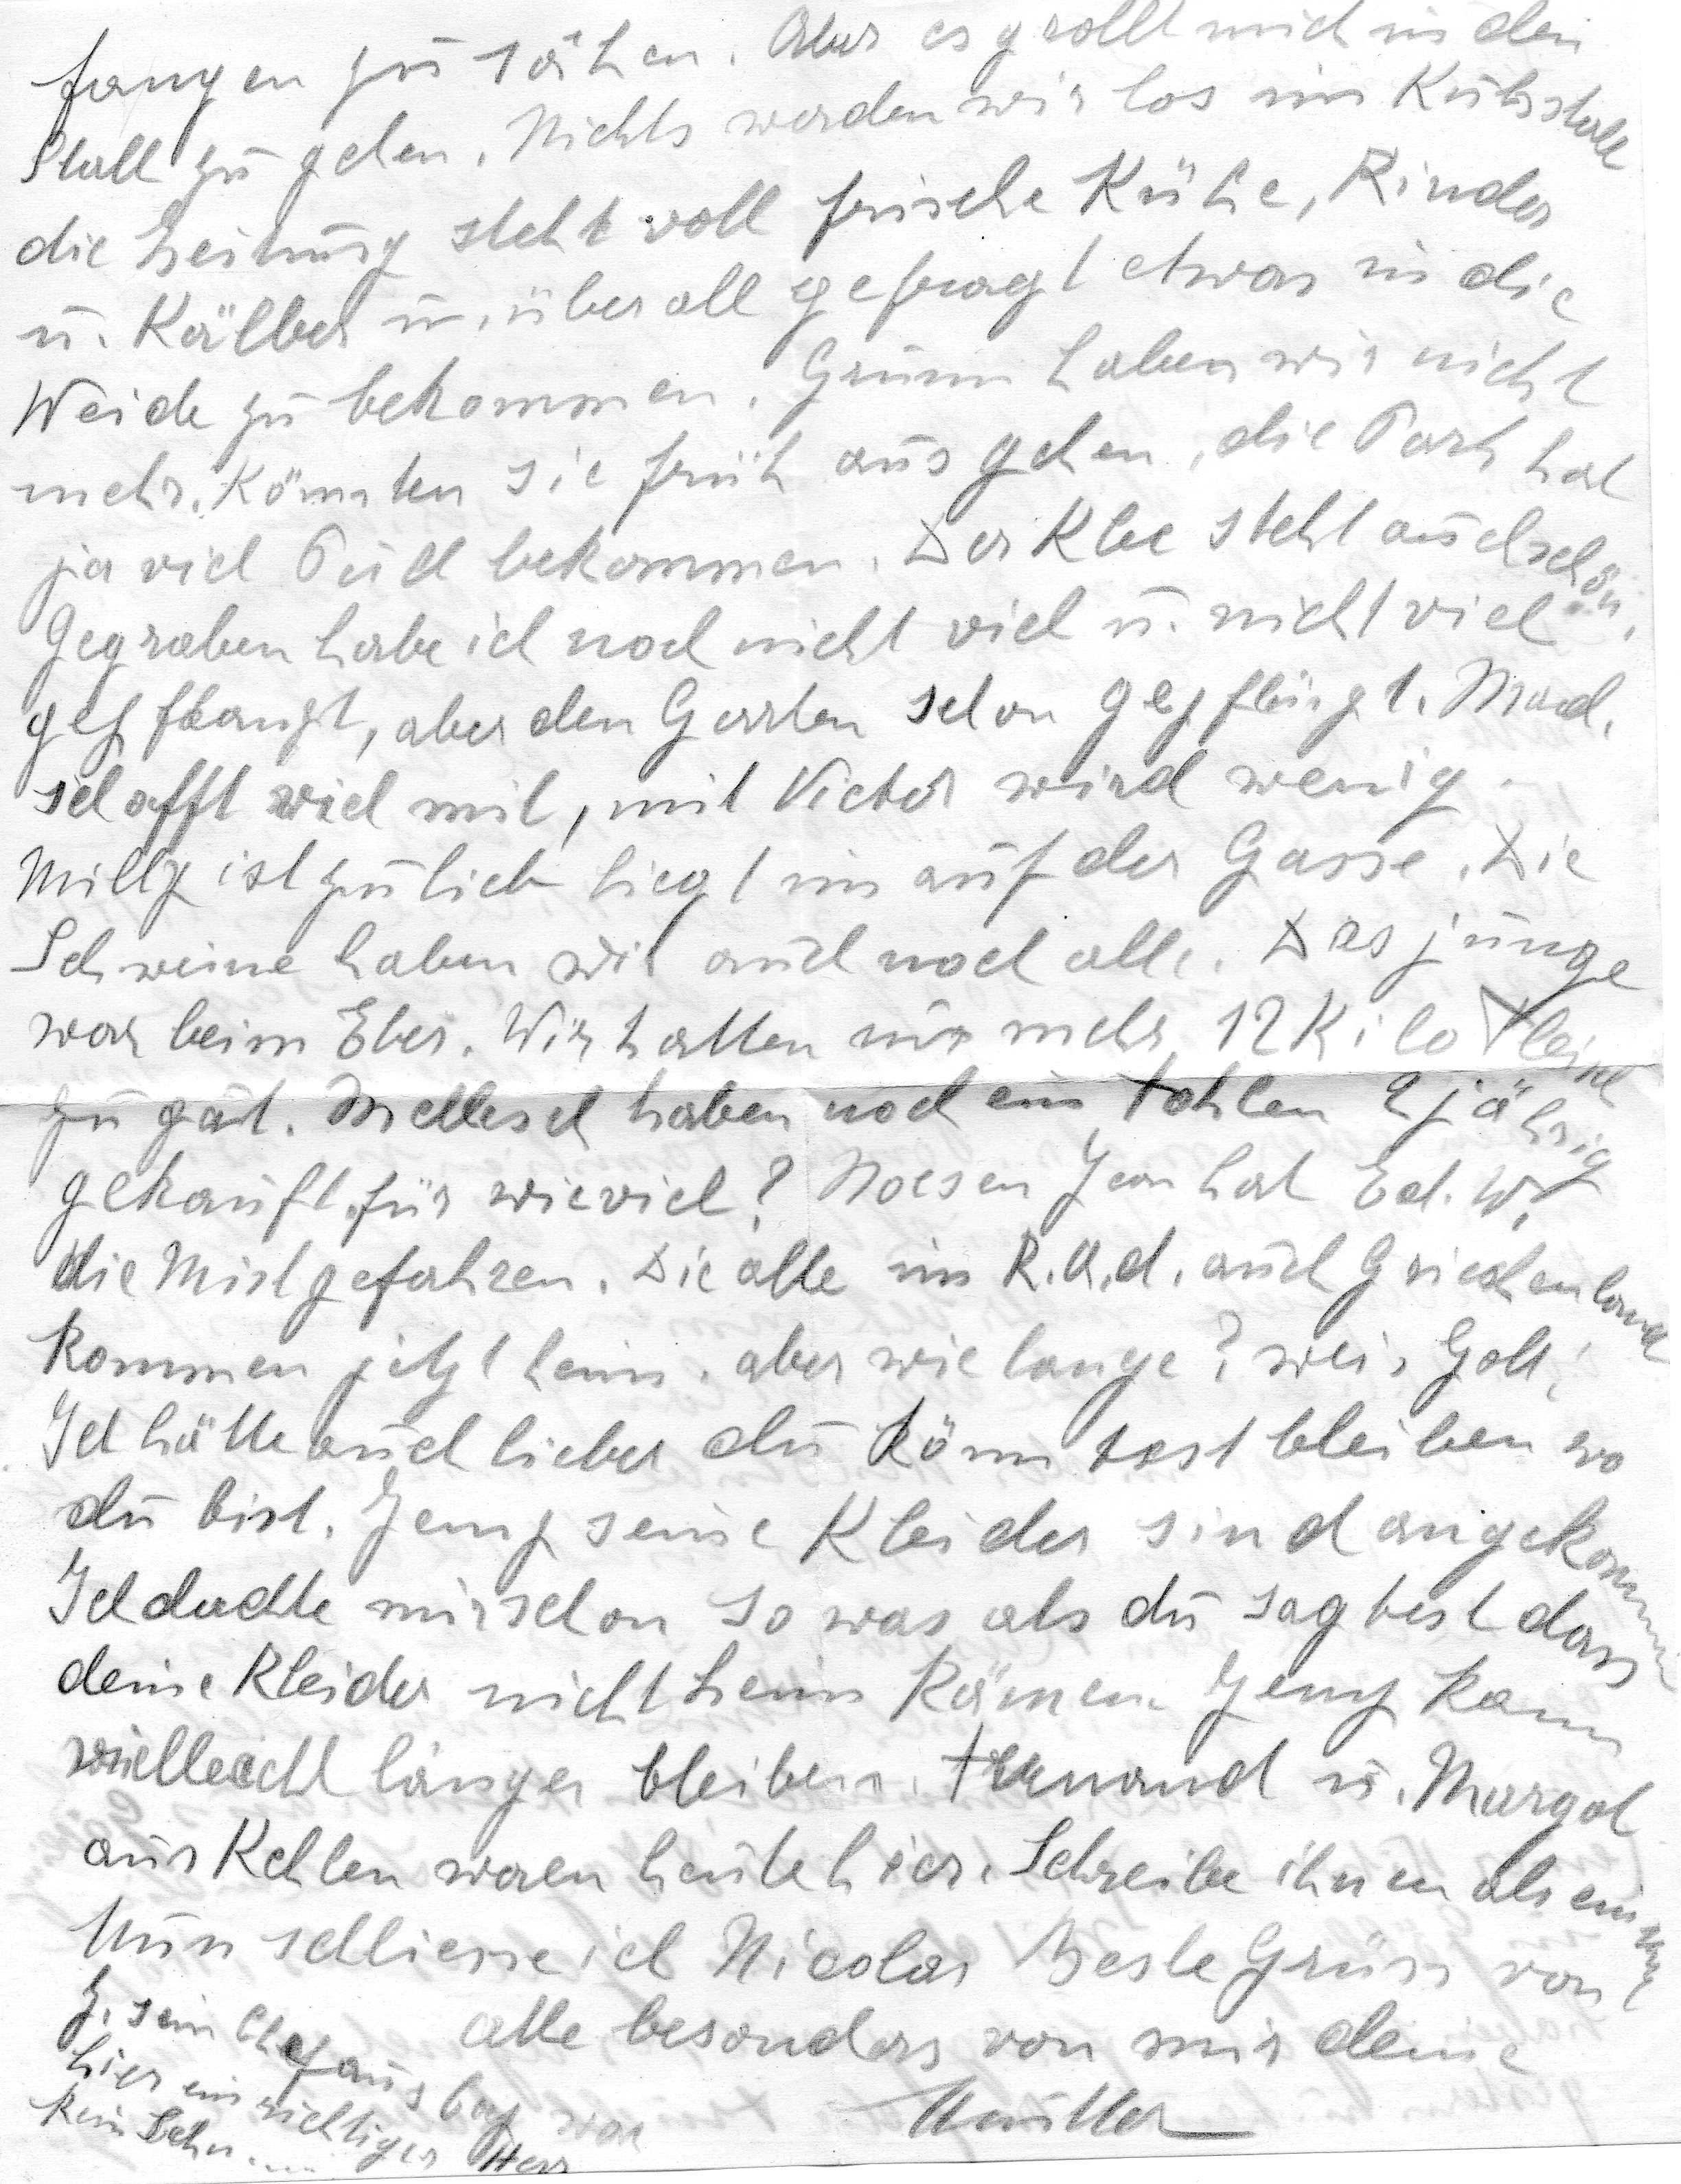 fangen zu sähen. Aber es grollt mich in den
Stall zu gehen. Nichts werden wir los im Kuhstall
die Zeitung steht voll frische Kühe, Rinder
u. Kälber u. überall gefragt etwas in die
Weide zu bekommen. Grünn haben wir nicht
mehr. Könnten sie früh aus gehen, die hat
ja viel bekommen. Der Klee steht auch schön.
Gegraben habe ich noch nicht viel u. nicht viel
gepflanzt, aber den Garten schon gepflügt. Mad.
schafft viel mit, mit Victor wird wenig.
Milly ist zu lieb liegt im auf der Gasse. Die
Schweine haben wir auch noch alle. Das junge
war beim Eber. Wir hatten nur mehr 12 Kilo Fleisch
zu gut. haben noch ein Fohlen 2 jährig
gekauft für wieviel? Noesen Jean hat Ed. W.
die Mist gefahren. Die alle im R.A.d. auch Griechenland
kommen jetzt heim. aber wie lange? weis Gott!
Ich hätte auch lieber du könntest bleiben wo
du bist. Jemp seine Kleider sind angekommen
Ich dachte mir schon so was als du sagtest dass
deine Kleider nicht heim kämen. Jemp kann
vielleicht länger bleiben. Fernand u. Margot
aus Kehlen waren heute hier. Schreibe ihnen als einmal
Nun schliesse ich Nicolas Beste Grüss von
alle besonders von mir deine
Mutter
J. sein Chef aus war
hier ein richtiger Herr
kein